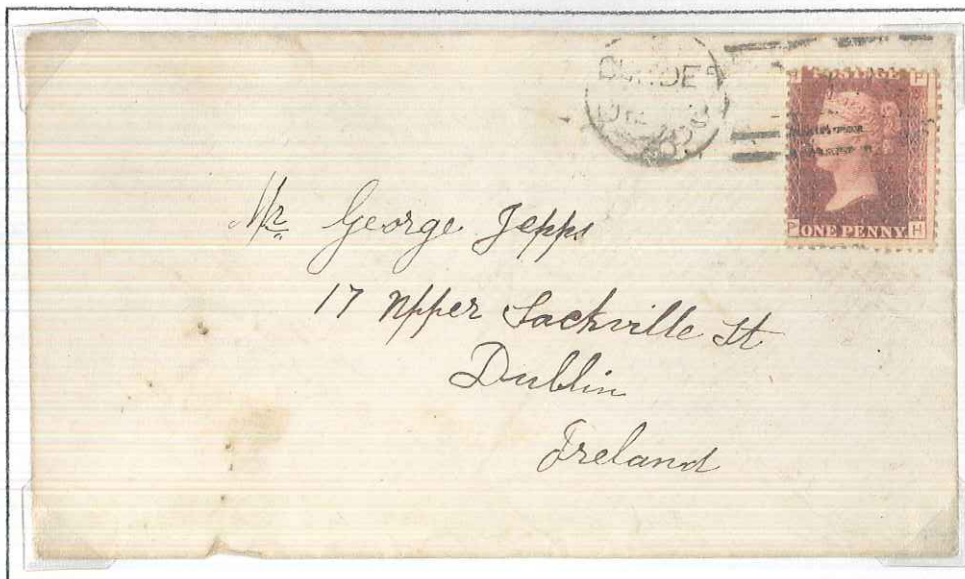 H POSTAGE P
P ONE PENNY H
Mr George Jepps
17 Upper Sackville St
Dublin
Ireland